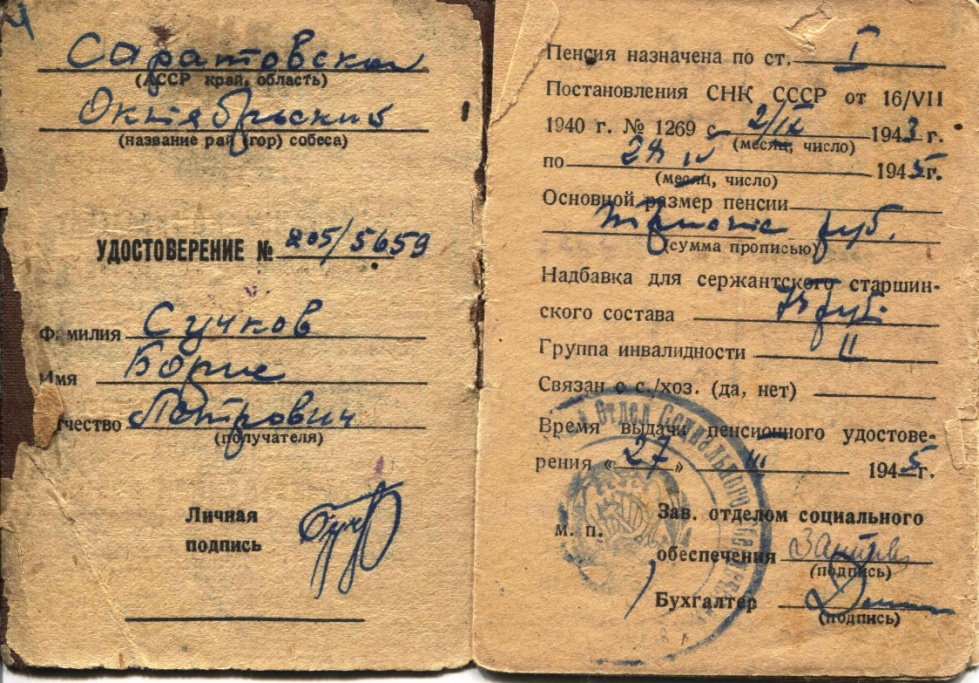 Саратовская
(АССР край, область)
Октябрьский
(название рай (гор) собеса)
УДОСТОВЕРЕНИЕ № 205/5659
Фамилия Сучков
Имя Борис
Отчество Петрович
(получателя)
Личная
подпись
Пенсия назначена по ст. I
Постановления СНК СССР от 16/VII
1940 г. № 1269 с 2/IX 1943 г.
(месяц, число)
по 1945 г.
(месяц, число)
Основной размер пенсии
руб.
(сумма прописью)
Надбавка для сержантского старшин-
ского состава руб.
Группа инвалидности II
Связан с с./хоз. (да, нет)
Время выдачи пенсионного удостове-
рения « 27 » III 1945 г.
Отдел Социального
м. п.
Зав. отделом социального
обеспечения
(подпись)
Бухгалтер
(подпись)